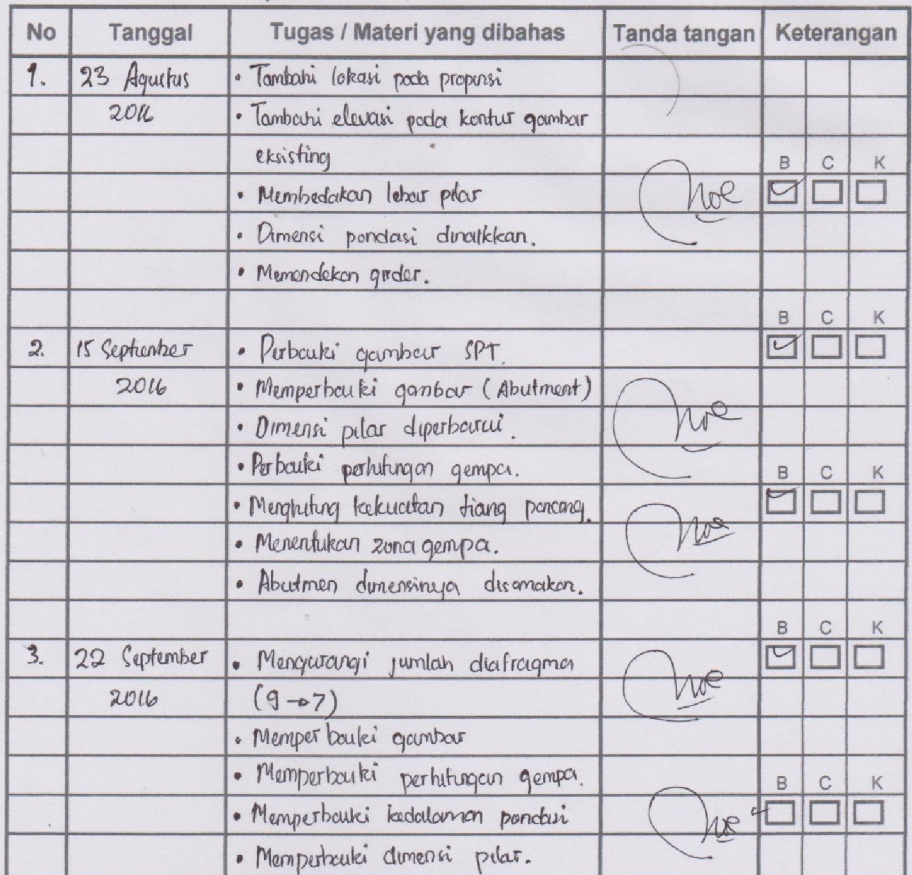 No Tanggal Tugas / Materi yang dibahas Tanda tangan Keterangan
1. 23 Agustus • Tambahi lokasi pada propinsi
2016 • Tambahi elevasi pada kontur gambar
eksisting
B C K
• Membedakan lebar pilar
• Dimensi pondasi dinaikkan.
• Memendekan girder.
B C K
2. 15 September • Perbaiki gambar SPT.
2016 • Memperbaiki gambar (Abutment)
• Dimensi pilar diperbarui.
• Perbaiki perhitungan gempa.
B C K
• Menghitung kekuatan tiang pancang.
• Menentukan zona gempa.
• Abutmen dimensinya disamakan.
B C K
3. 22 September • Mengurangi jumlah diafragma
2016 (9→7)
• Memperbaiki gambar
• Memperbaiki perhitungan gempa.
B C K
• Memperbaiki kedalaman pondasi
• Memperbaiki dimensi pilar.